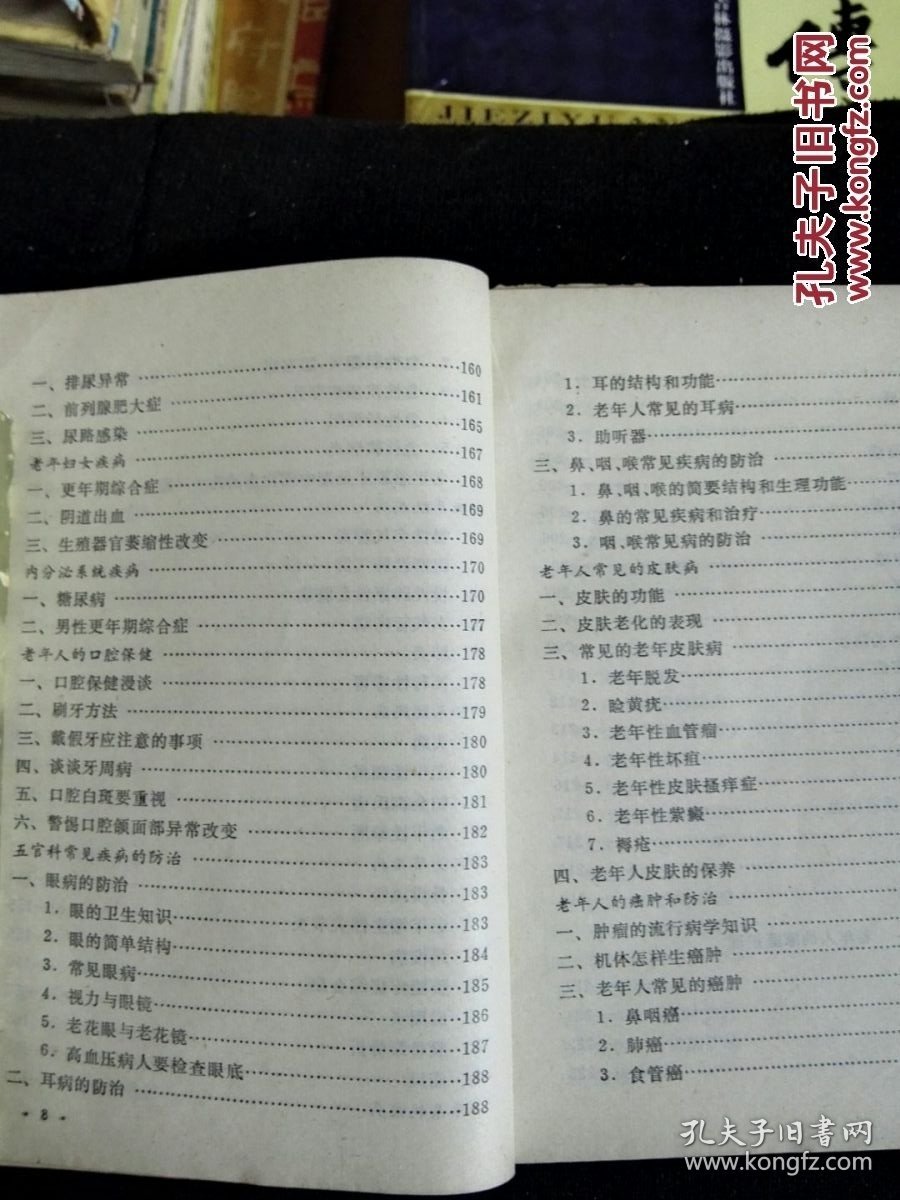 吉林摄影出版社
JIEZIYUAN
孔夫子旧书网
www.kongfz.com
一、排尿异常……160
二、前列腺肥大症……161
三、尿路感染……165
老年妇女疾病……167
一、更年期综合症……168
二、阴道出血……169
三、生殖器官萎缩性改变……169
内分泌系统疾病……170
一、糖尿病……170
二、男性更年期综合症……177
老年人的口腔保健……178
一、口腔保健漫谈……178
二、刷牙方法……179
三、戴假牙应注意的事项……180
四、谈谈牙周病……180
五、口腔白斑要重视……181
六、警惕口腔颌面部异常改变……182
五官科常见疾病的防治……183
一、眼病的防治……183
1．眼的卫生知识……183
2．眼的简单结构……184
3．常见眼病……185
4．视力与眼镜……186
5．老花眼与老花镜……187
6．高血压病人要检查眼底……188
二、耳病的防治……188
· 8 ·
1．耳的结构和功能……
2．老年人常见的耳病……
3．助听器……
三、鼻、咽、喉常见疾病的防治……
1．鼻、咽、喉的简要结构和生理功能……
2．鼻的常见疾病和治疗……
3．咽、喉常见病的防治……
老年人常见的皮肤病……
一、皮肤的功能……
二、皮肤老化的表现……
三、常见的老年皮肤病……
1．老年脱发……
2．睑黄疣……
3．老年性血管瘤……
4．老年性坏疽……
5．老年性皮肤搔痒症……
6．老年性紫癜……
7．褥疮……
四、老年人皮肤的保养……
老年人的癌肿和防治……
一、肿瘤的流行病学知识……
二、机体怎样生癌肿……
三、老年人常见的癌肿……
1．鼻咽癌……
2．肺癌……
3．食管癌……
孔夫子旧书网
www.kongfz.com